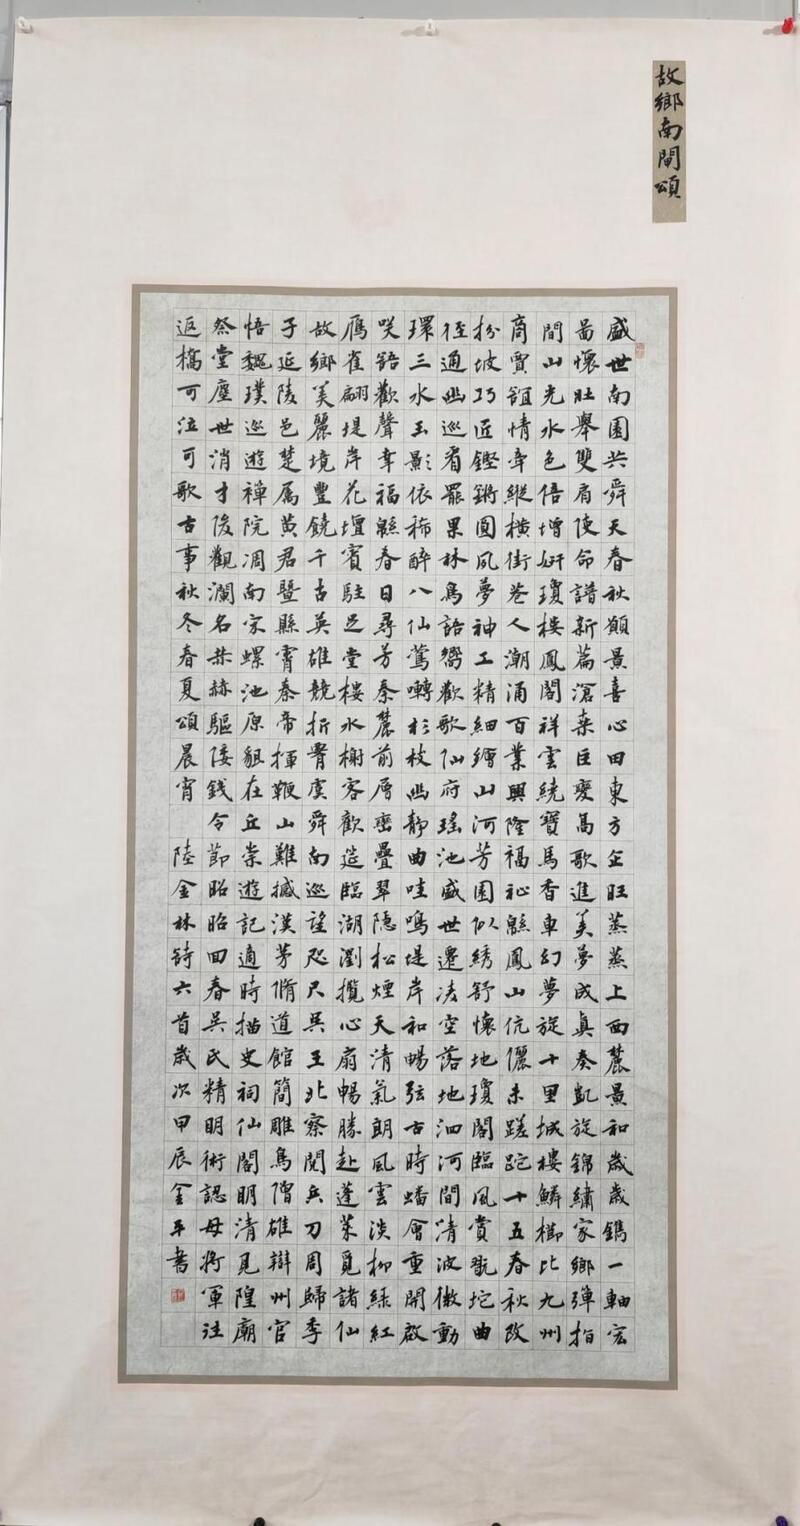 故鄉南閘頌
盛世南園共舜天春秋願景喜心田東方企旺蒸蒸上西麓景和歲歲鐫一軸宏
啚懷壯舉雙肩使命譜新篇滄桒巨變高歌進美夢成真奏凱旋錦繡家鄉彈指
間山光水色倍增妍瓊樓鳳閣祥雲繞寶馬香車幻夢旋十里城樓鱗櫛比九州
商賈誼情牽縱橫街巷人潮涌百業興隆福祉緜鳳山伉儷未蹉跎十五春秋改
扮坡巧匠鏗鏘圓夙夢神工精細繪山河芳園似綉舒懷地瓊閣臨風賞翫坨曲
徑通幽巡看罷果林鳥語嚮歡歌仙府瑤池盛世遷淩空落地泗河間清波微動
環三水玉影依稀醉八仙鶯囀杉枝幽靜曲哇鳴堤岸和暢弦古時蟠會重開啟
咲語歡聲幸福緜春日尋芳秦麓前層巒疊翠隱松煙天清氣朗風雲淡柳綠紅
鴈雀翩堤岸花壇賓駐足堂樓水榭客歡造臨湖瀏攬心扇暢勝赴蓬萊覓諸仙
故鄉美麗境豐饒千古英雄競折虞舜南巡望咫尺吳王北察閱兵刀周歸季
子延陵邑楚属黃君暨縣霄秦帝揮鞭山難撼漢茅脩道館簡雕鳥隋雄辯州官
悟魏璞巡遊禪院凋南宋螺池原貌在丘崇遊記適時描史祠仙閣明清見隍廟
祭堂塵世消才俊觀瀾名赫驅倭錢令節昭昭回春吳氏精明術認母將軍往
返橋可泣可歌古事秋冬春夏頌晨宵 陸金林詩六首歲次甲辰金平書